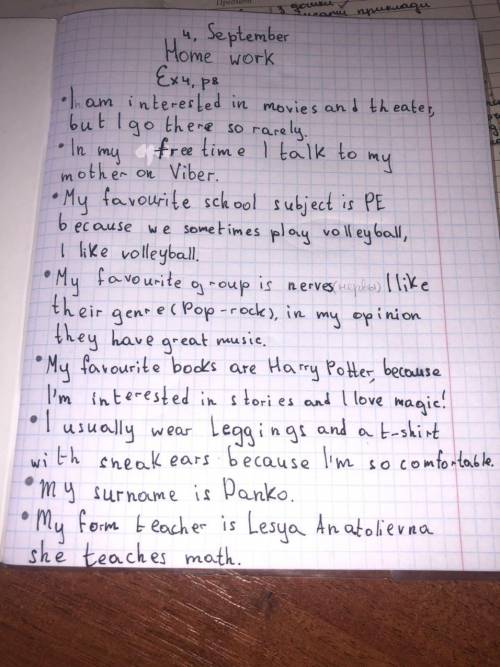 4, September
Home work
Ex4, p8
• I am interested in movies and theater,
but I go there so rarely.
• In my free time I talk to my
mother on Viber.
• My favourite school subject is PE
because we sometimes play volleyball,
I like volleyball.
• My favourite group is nerves (нервы) I like
their genre (Pop-rock), in my opinion
they have great music.
• My favourite books are Harry Potter, because
I'm interested in stories and I love magic!
• I usually wear Leggings and a t-shirt
with sneakears because I'm so comfortable.
• My surname is Danko.
• My form teacher is Lesya Anatolievna
she teaches math.